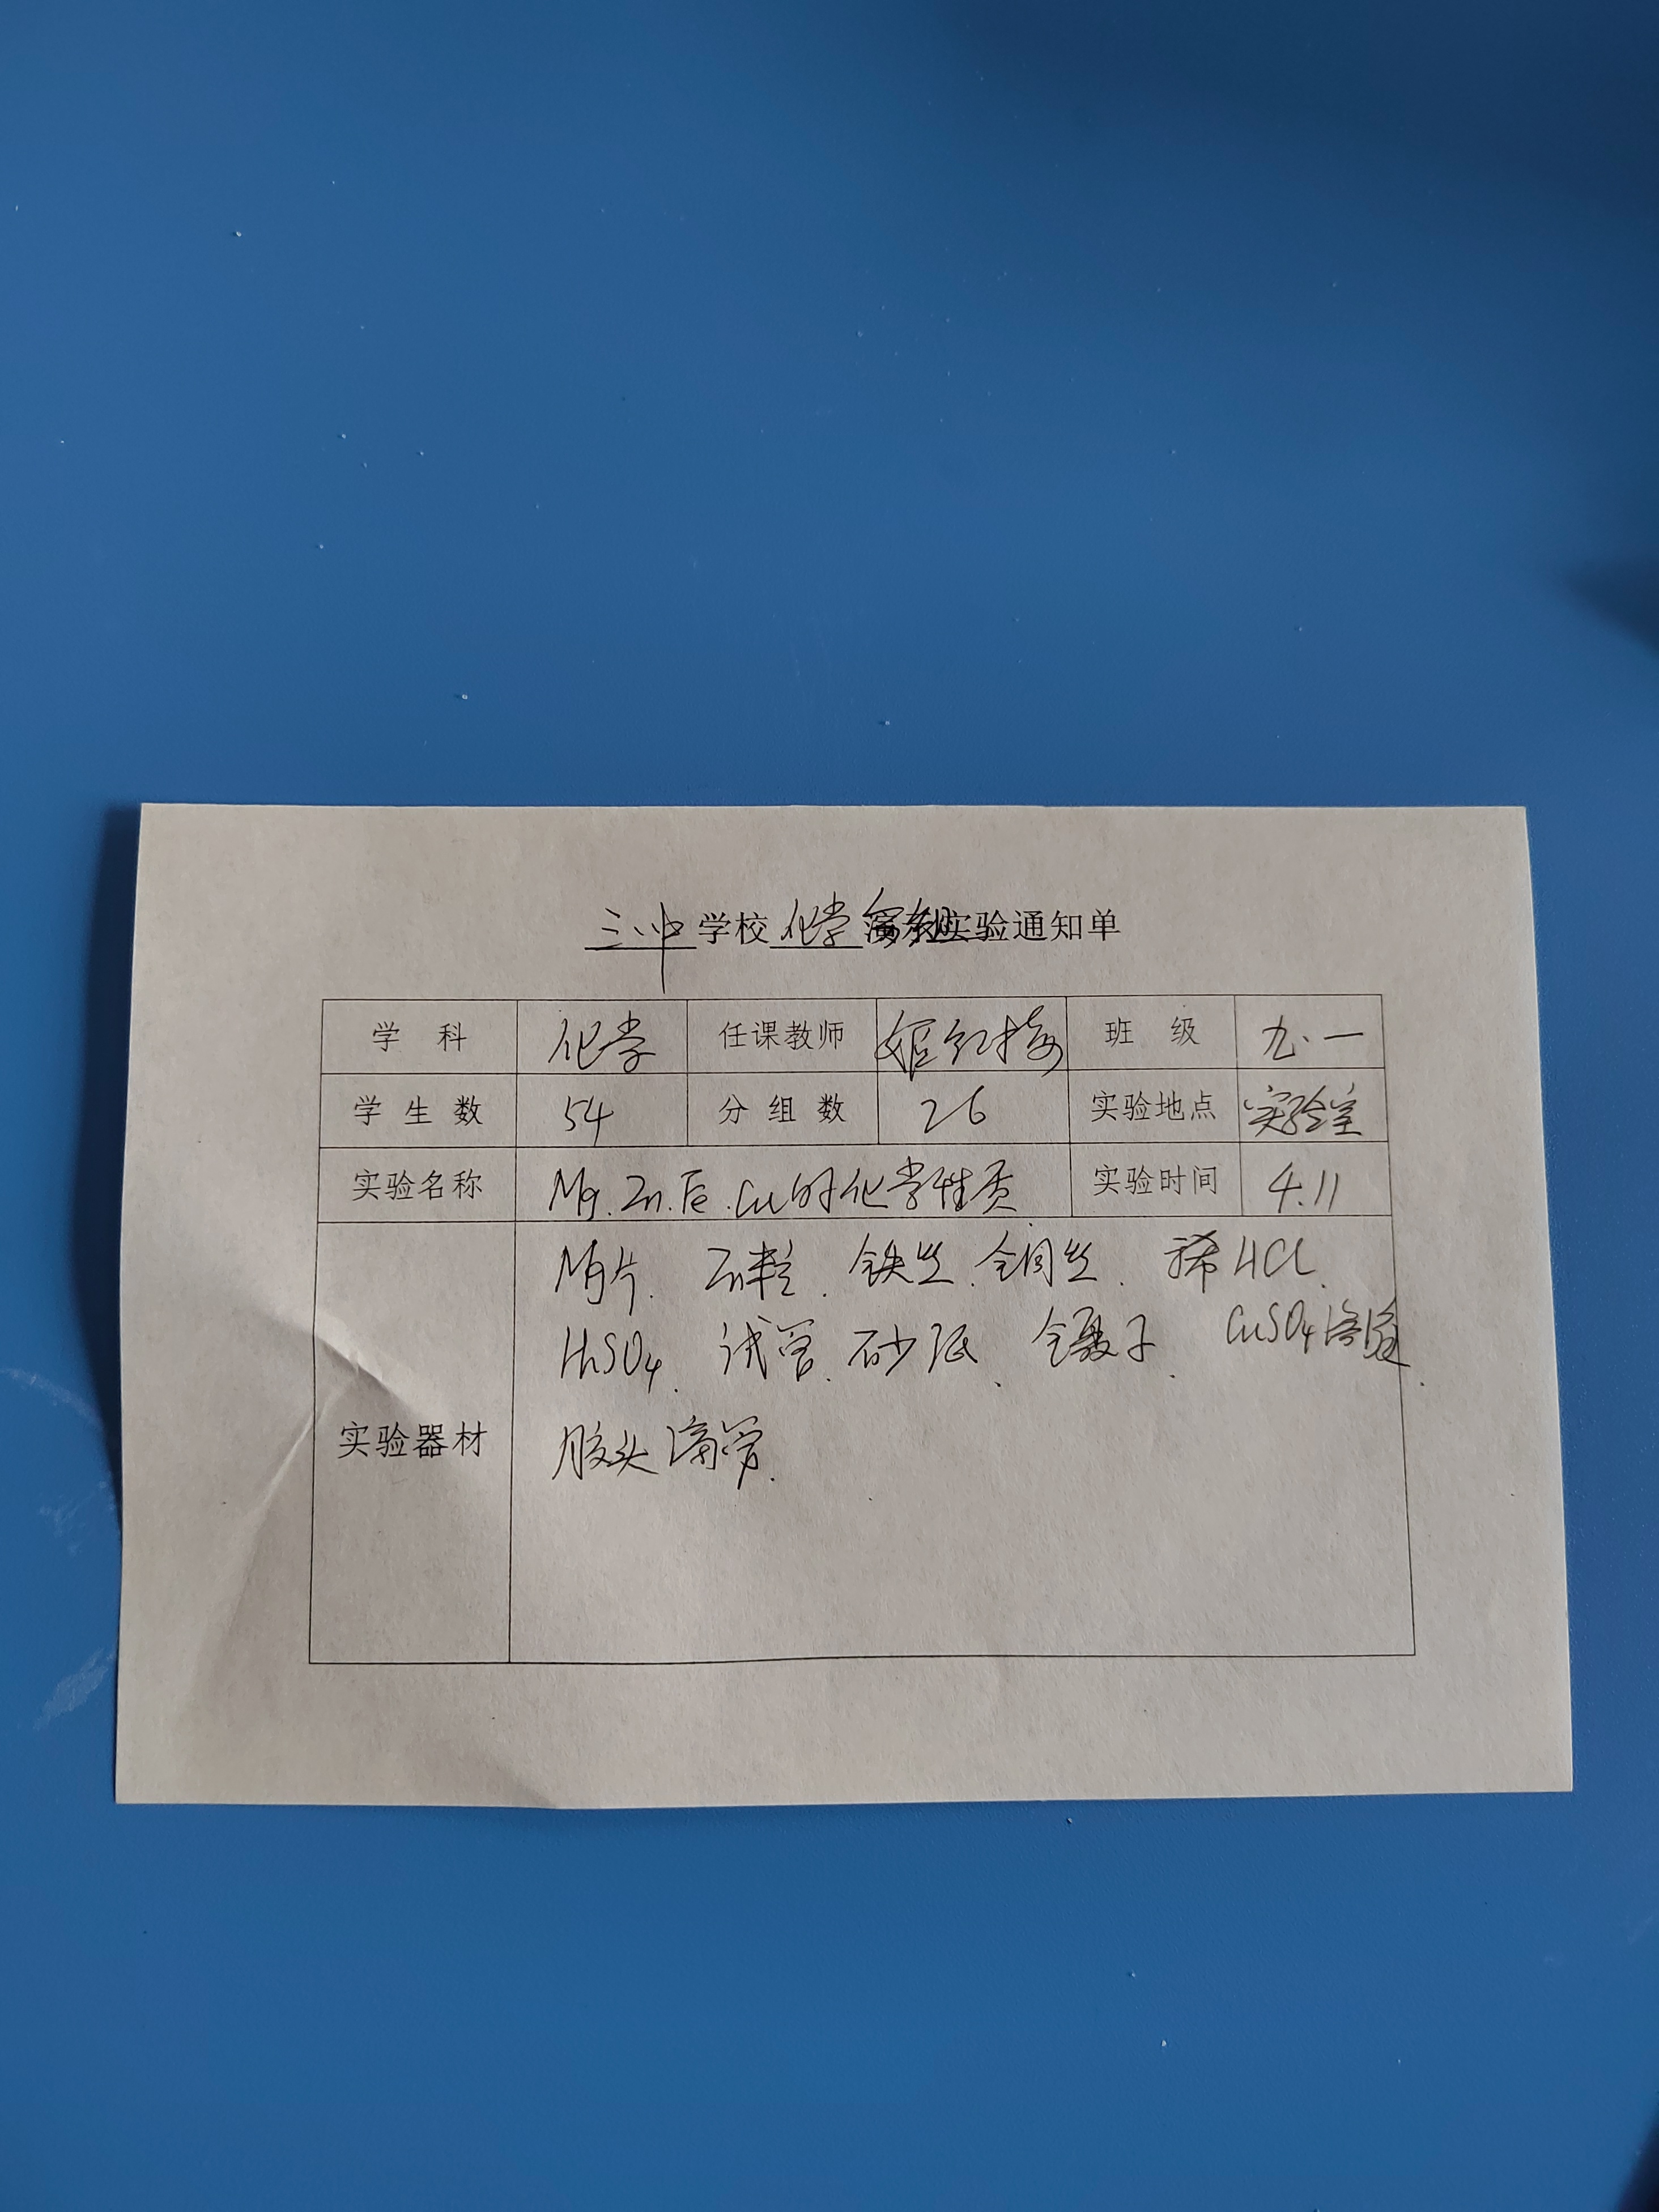 三中学校化学分组实验通知单
学 科 化学 任课教师 姬红梅 班 级 九.一
学 生 数 54 分 组 数 26 实验地点 实验室
实验名称 Mg.Zn.Fe.Cu的化学性质 实验时间 4.11
Mg片. Zn粒. 铁丝.铜丝. 稀HCl.
H2SO4. 试管.砂纸. 镊子. CuSO4溶液.
实验器材 胶头滴管.